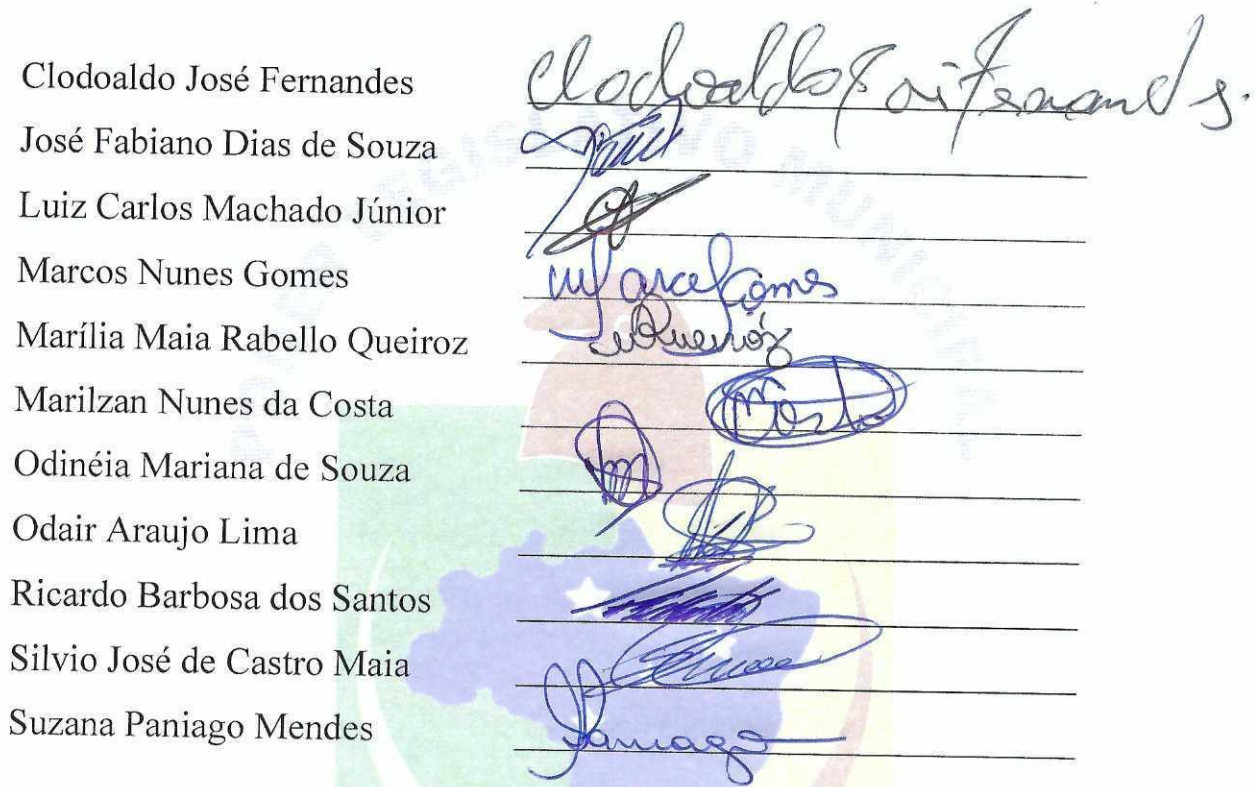 Clodoaldo José Fernandes Clodoaldo José Fernandes.
José Fabiano Dias de Souza
Luiz Carlos Machado Júnior
Marcos Nunes Gomes Gomes
Marília Maia Rabello Queiroz Queiróz
Marilzan Nunes da Costa Costa
Odinéia Mariana de Souza
Odair Araujo Lima
Ricardo Barbosa dos Santos
Silvio José de Castro Maia
Suzana Paniago Mendes Paniago